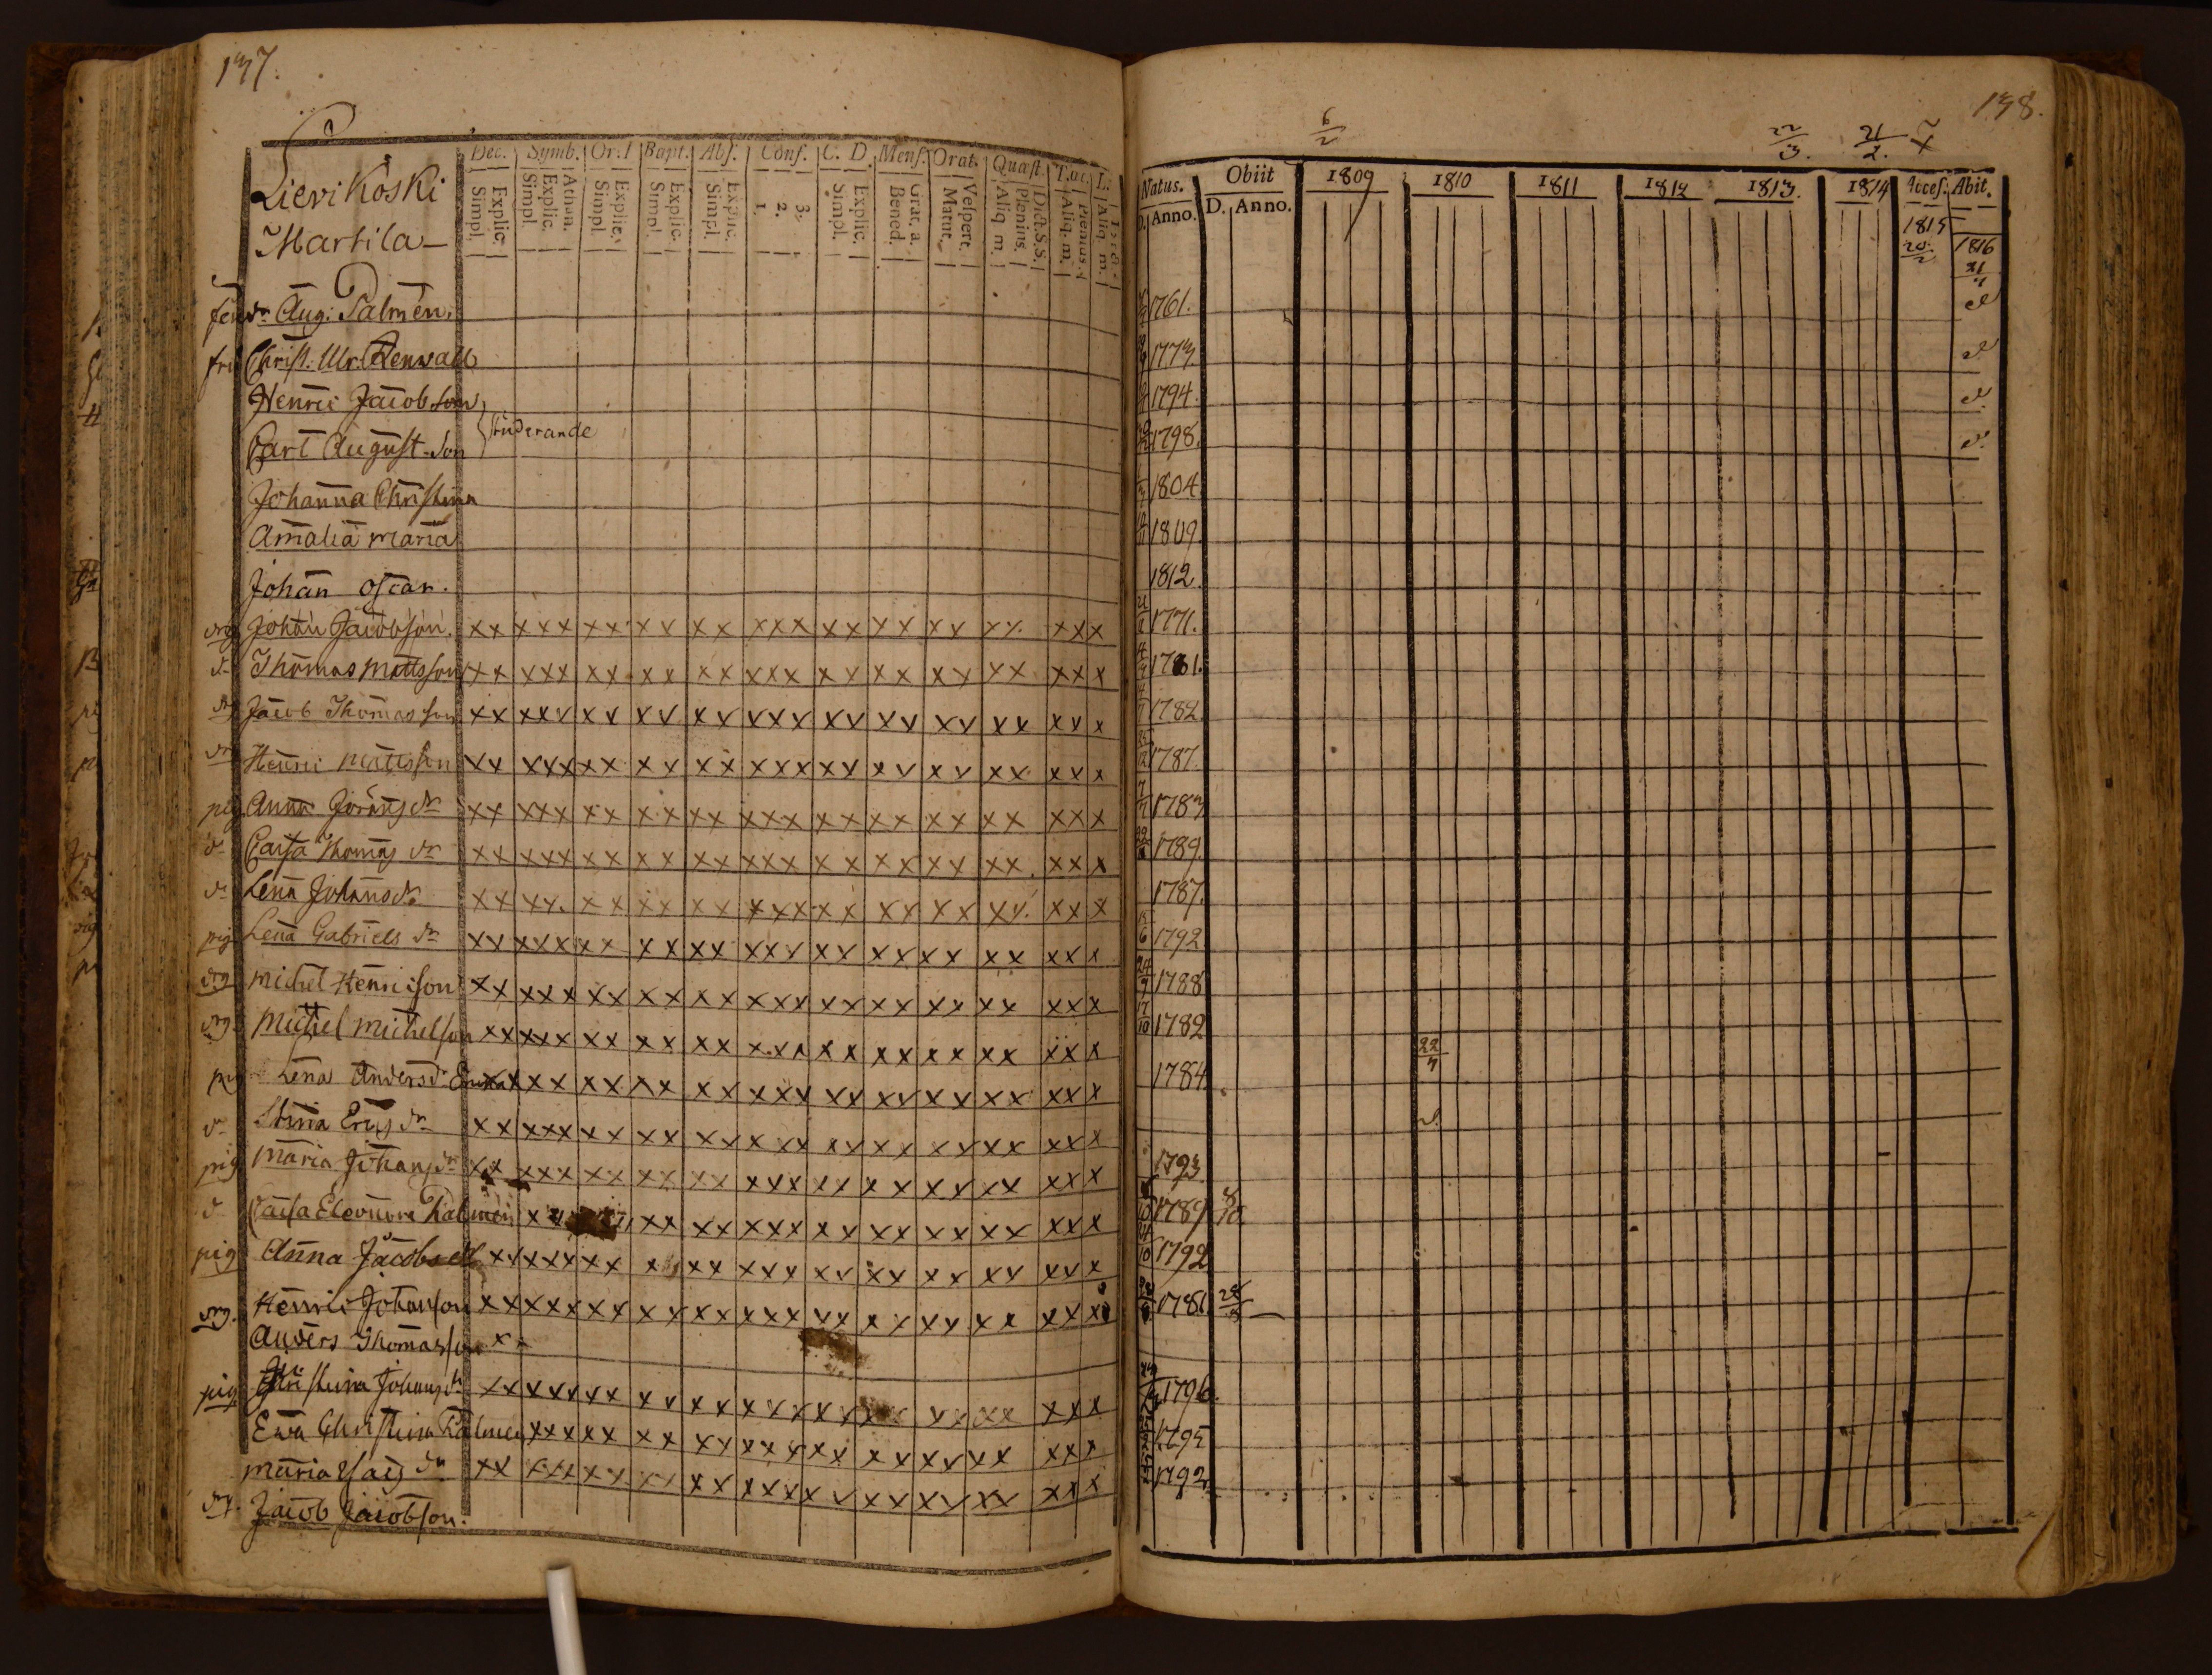 137.
138.
6/2
22/3.
21/2.
Dec. Symb. Or.I Bapt. Abs. Conf. C. D. Mens. Orat. Quæst. T.œc. L.
Simpl. Explic. Simpl. Explic. Athan. Simpl. Explic. Simpl. Explic. Simpl. Explic. 1. 2. 3. Simpl. Explic. Bened. Grat. a. Matut. Vespert. Aliq m. Plenius. Dict.S.S. Aliq. m. Plenius. Aliq m.
Natus. Obiit 1809 1810 1811 1812 1813. 1814 Acces. Abit.
D. Anno. D. Anno.
Lievikoski
Martila
1815 20/2 1816
Aug. Palmén. 1761.
Christ. Ulr. Renwall 1773.
Henric Jacobson 1794.
Studerande
Carl August-son 1798.
Johanna Christina 1804.
Amalia Maria 1809
Johan Oscar. 1812.
drg Johan Jacobson. xx xxx xx xx xx xxx xx xx xx xx xx x 1771.
d:o Thomas Mattsson xx xxx xx xx xx xxx xx xx xx xx xx x 1781.
drg Jacob Thomasson xx xxx xx xx xx xxx xx xx xx xx xx x 1782
Henric Mattsson xx xxx xx xx xx xxx xx xx xx xx xx x 1787.
pig Anna Jöransdr xx xxx xx xx xx xxx xx xx xx xx xx x 1783
d:o Caisa Thomasdr xx xxx xx xx xx xxx xx xx xx xx xx x 1789.
d:o Lena Johansdr xx xx. xx xx xx xxx xx xx xx xx xx x 1787.
pig Lena Gabrielsdr xx xxx xx xx xx xxx xx xx xx xx xx x 1792
drg Michel Henricson xx xxx xx xx xx xxx xx xx xx xx xx x 1788
drg. Michel Michelson xx xxx xx xx xx xxx xx xx xx xx xx x 17/10 1782
pig Lena Andersdr xxx xx xx xx xxx xx xx xx xx xx x 1784
d:o Stina Ericsdr xx xxx xx xx xx xxx xx xx xx xx xx x
pig Maria Johansdr xx xxx xx xx xx xxx xx xx xx xx xx x 1793
d:o Caisa Eleonora Palmén xx xx xx xxx xx xx xx xx xx x 1789
pig Anna Jacobsdr xx xxx xx xx xx xxx xx xx xx xx xx x 1792
drg. Henric Johanson xx xxx xx xx xx xxx xx xx xx xx xx x 1781
Anders Thomasson x
pig Christina Johansdr xx xxx xx xx xx xxx xx xx xx xx xx x 1796.
Ewa Christina Palmén xxx xx xx xx xxx xx xx xx xx xx x 1795
Maria Isacsdr xx xxx xx xx xx xxx xx xx xx xx xx x 1792
drg. Jacob Jacobson.